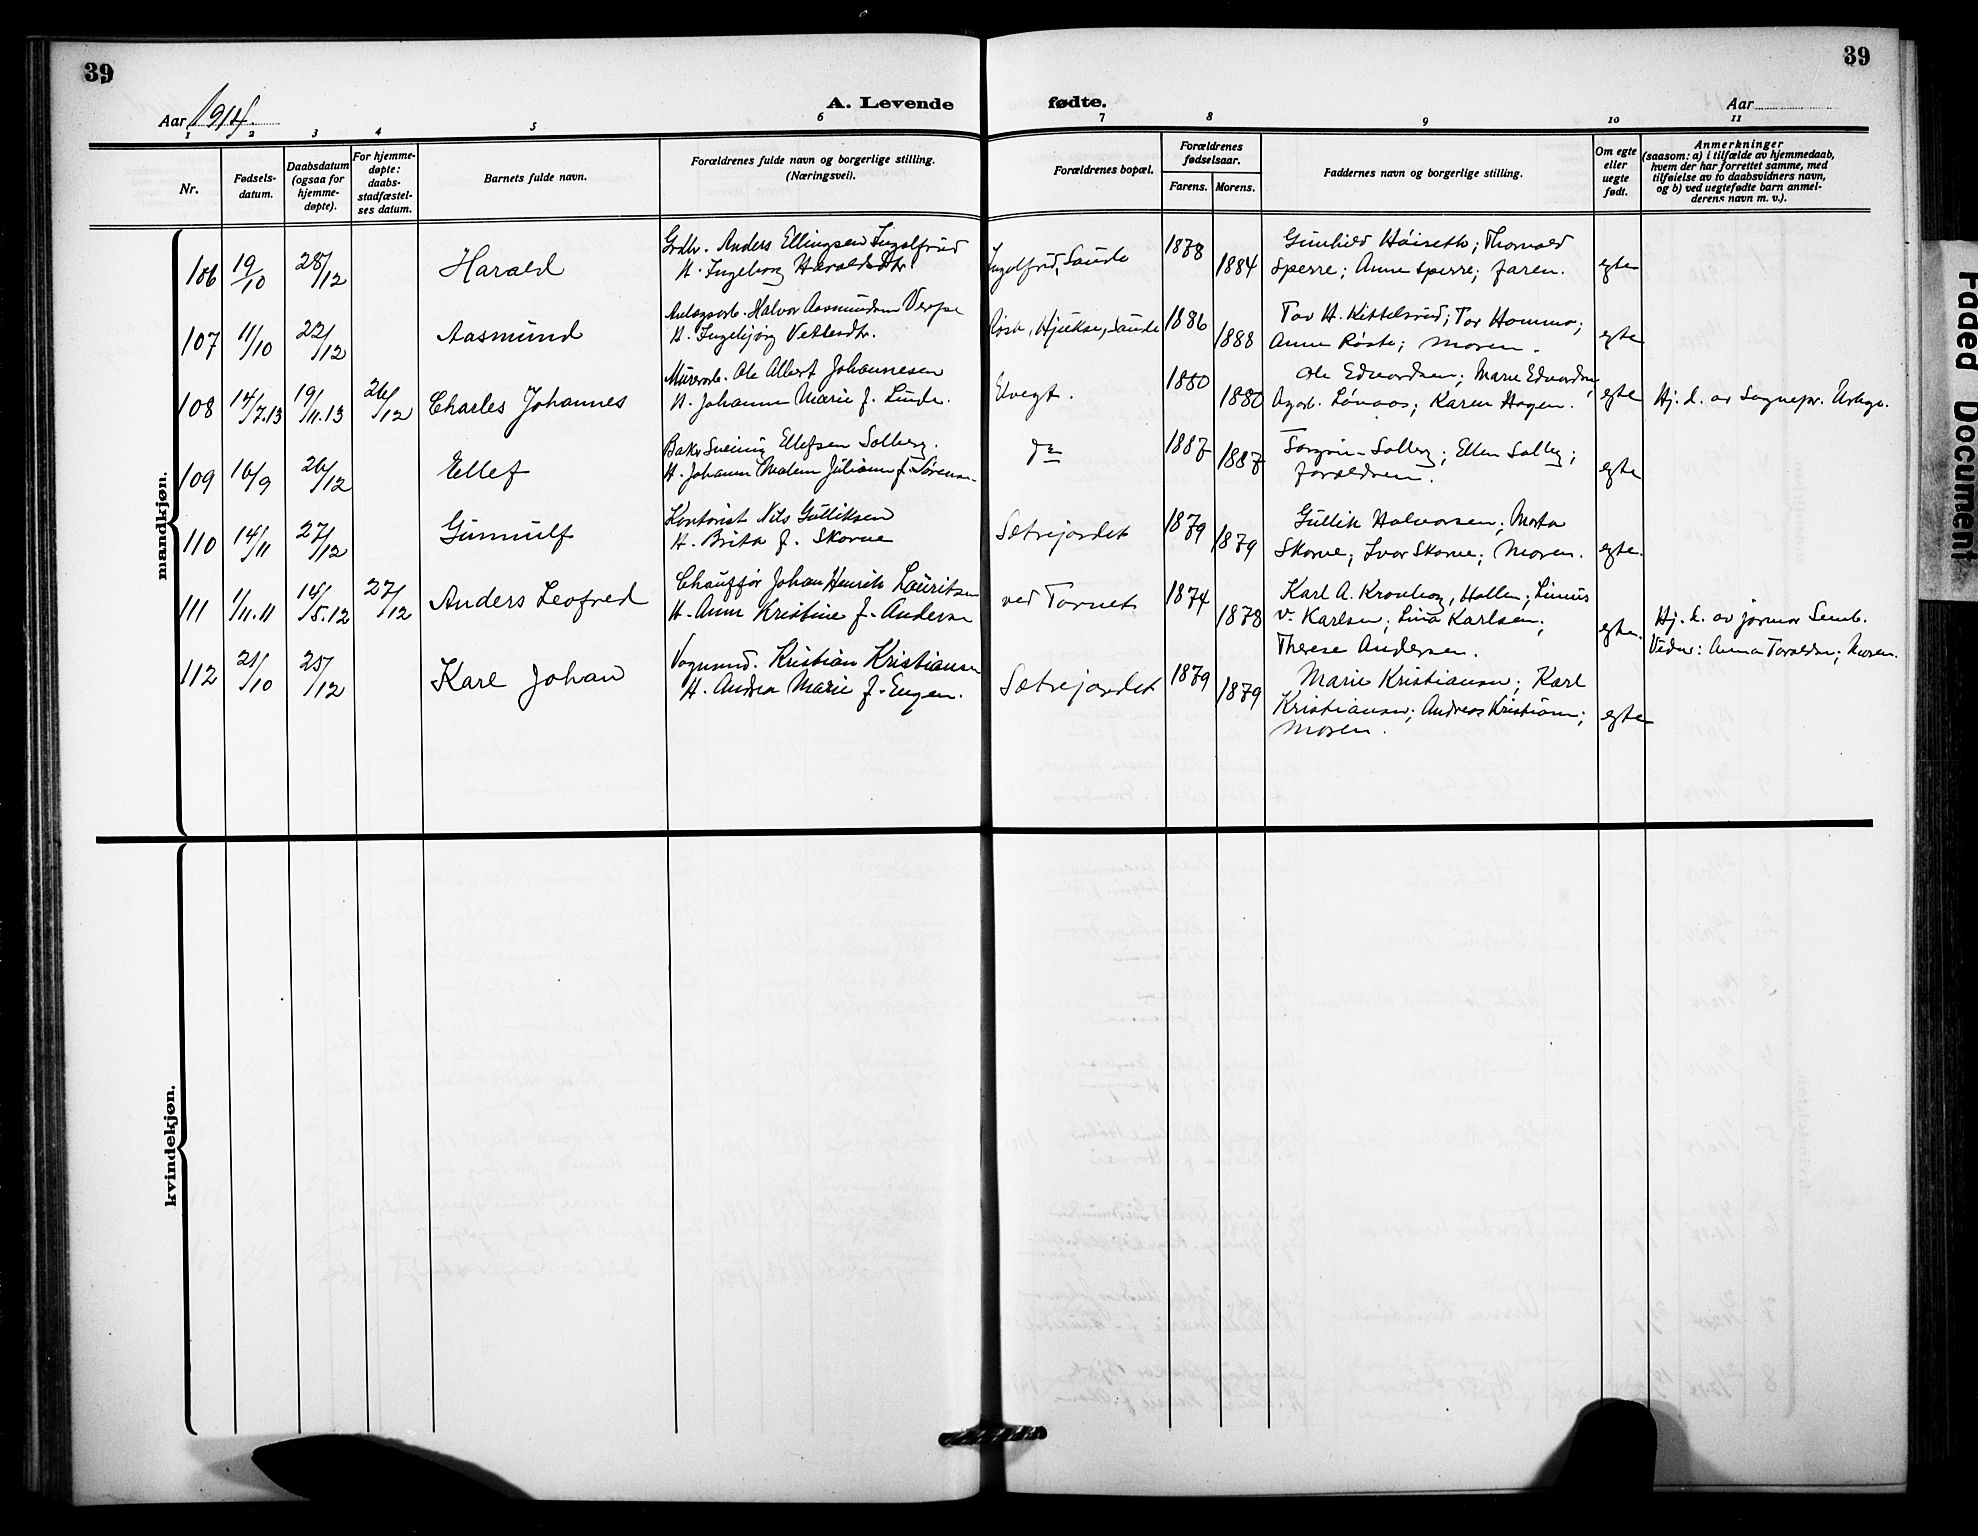 39
39
Aar 1914.
A. Levende
fødte.
Aar
1 2 3 4 5 6 7 8 9 10 11
Nr.
Fødsels-
datum.
Daabsdatum
(ogsaa for
hjemme-
døpte).
For hjemme-
døpte:
daabs-
stadfæstel-
ses datum.
Barnets fulde navn.
Forældrenes fulde navn og borgerlige stilling.
(Næringsvei).
Forældrenes bopæl.
Forældrenes
fødselsaar.
Farens. Morens.
Faddernes navn og borgerlige stilling.
Om egte
eller
uegte
født.
Anmerkninger
(saasom: a) i tilfælde av hjemmedaab,
hvem der har forrettet samme, med
tilføielse av to daabsvidners navn,
og b) ved uegtefødte barn anmel-
derens navn m. v.).
mandkjøn.
106 19/10 28/12 Harald
Grdbr. Anders Ellingsen Ingolfrud
H. Ingeborg Haraldsdtr.
Ingolfrud, Saude 1878 1884
Gunhild Høiseth; Thorvald
Sperre; Anne Sperre; faren.
egte
107 11/10 22/12 Aasmund
Anlægsarb. Halvor Aasmundsen Verpe
H. Ingebjørg Vetlesdtr.
Hjukse, Saude 1886 1888
Tov H. Kittelsrud; Tor Hommo;
Anne Røste; Moren.
egte
108 14/7.13 19/11.13 26/12 Charles Johannes
Murerarb. Ole Albert Johannesen
H. Johanne Marie f. Linde.
Elvegt. 1880 1880
Ole Edvardsen; Marie Edvardsen,
Lønaas; Karen Hagen.
egte
Hj. d. av Sognepr.
109 16/9 26/12 Ellef
Baker Sveinung Ellefsen Solberg.
H. Johanne Malene Juliane f. Sørensen
do 1887 1887
Solberg; Ellen Solberg;
forældrene.
egte
110 14/11 27/12 Gunnulf
Kontorist Nils Gulliksen
H. Brita f. Skorve
Sætrejordet 1879 1879
Gullik Halvorsen; Marta
Skorve; Ivar Skorve; Moren.
egte.
111 1/11.11 14/5.12 27/12 Anders Leofred
Chauffør Johan Henrik Lauritsen
H. Anne Kristine f. Andersen
ved Tornet 1874 1878
Karl A. Kronborg, Hollen; Linus
v. Karlsen; Lina Karlsen;
Therese Andersen.
egte.
Hj. d. av jormor Semb.
Vidner: Anna Toraldsen; Moren.
112 21/10 25/12 Karl Johan
Vognmd. Kristian Kristiansen
H. Andrea Marie f. Engen.
Sætrejordet 1879 1879
Marie Kristiansen; Karl
Kristiansen; Andreas Kristiansen;
Moren.
egte
kvindekjøn.
Faded Document